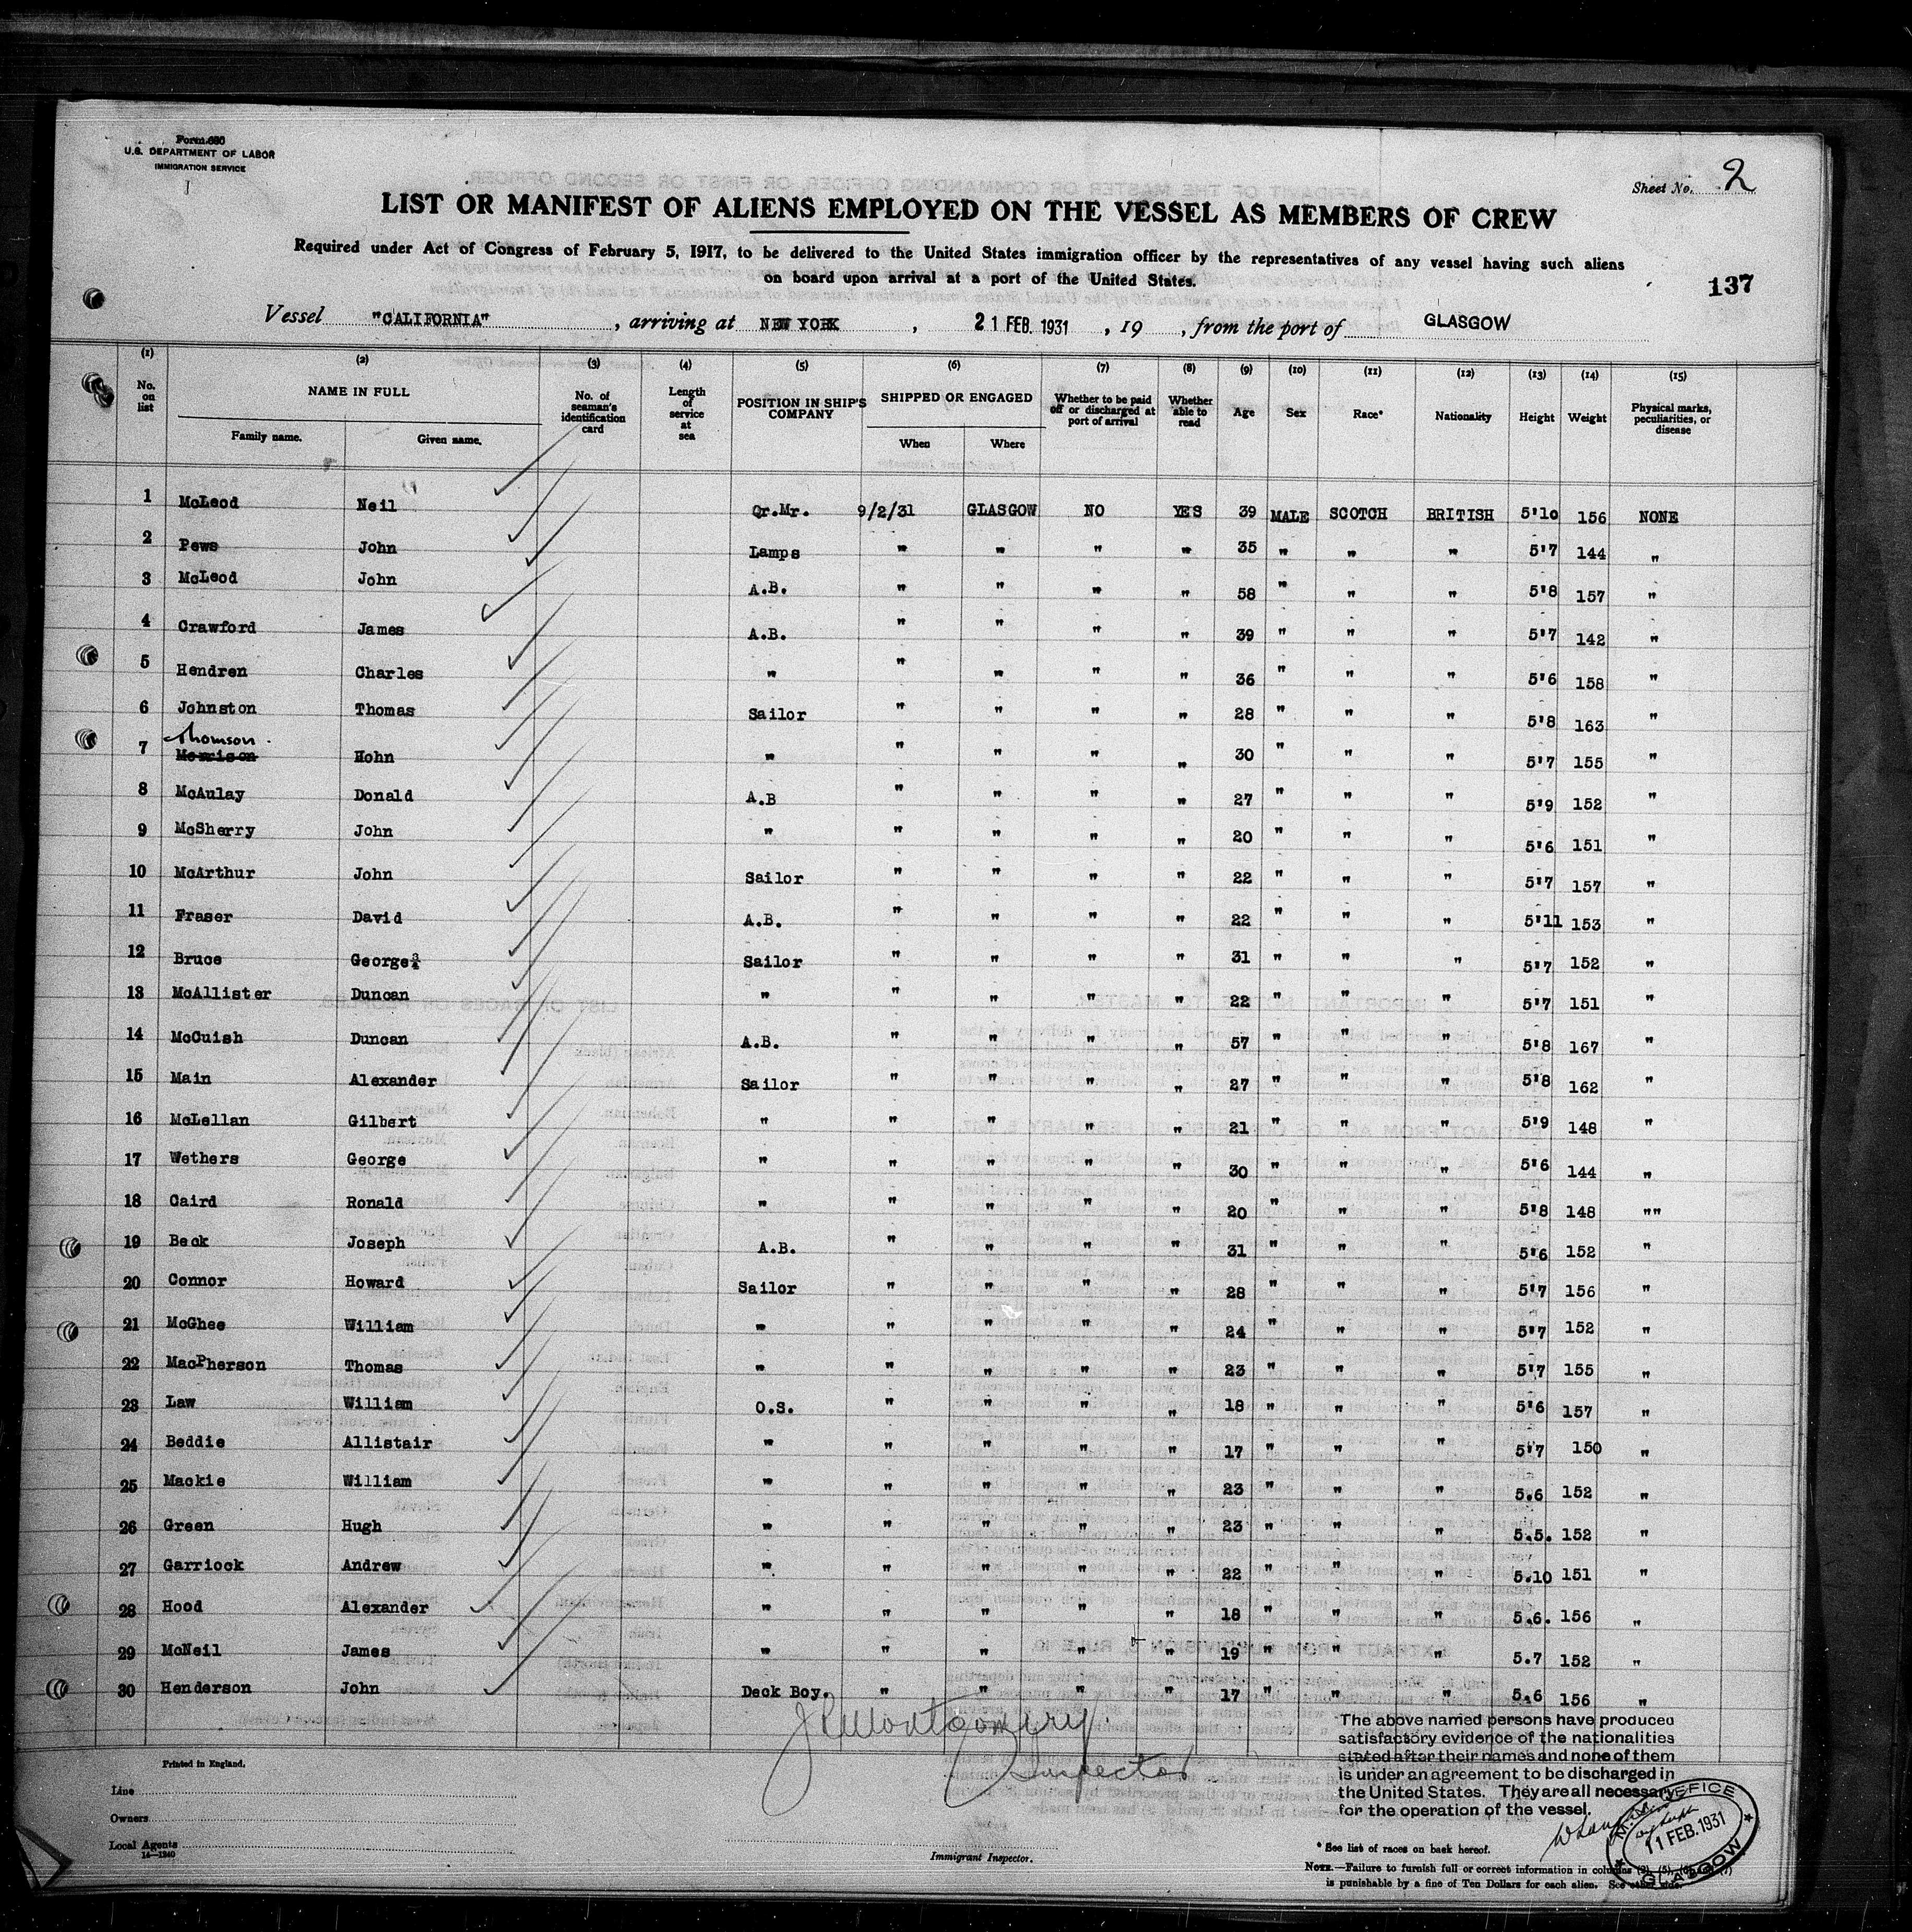 Form 680
U.S. DEPARTMENT OF LABOR
IMMIGRATION SERVICE
Sheet No. 2
LIST OR MANIFEST OF ALIENS EMPLOYED ON THE VESSEL AS MEMBERS OF CREW
Required under Act of Congress of February 5, 1917, to be delivered to the United States immigration officer by the representatives of any vessel having such aliens
on board upon arrival at a port of the United States.
137
Vessel "CALIFORNIA", arriving at NEW YORK, 21 FEB. 1931, 19 , from the port of GLASGOW
(1) (2) (3) (4) (5) (6) (7) (8) (9) (10) (11) (12) (13) (14) (15)
No. on list NAME IN FULL Family name. Given name. No. of seaman's identification card Length of service at sea POSITION IN SHIP'S COMPANY SHIPPED OR ENGAGED When Where Whether to be paid off or discharged at port of arrival Whether able to read Age Sex Race* Nationality Height Weight Physical marks, peculiarities, or disease
1 McLeod Neil Qr.Mr. 9/2/31 GLASGOW NO YES 39 MALE SCOTCH BRITISH 5'10 156 NONE
2 Pews John Lamps " " " " 35 " " " 5'7 144 "
3 McLeod John A.B. " " " " 58 " " " 5'8 157 "
4 Crawford James A.B. " " " " 39 " " " 5'7 142 "
5 Hendren Charles " " " " " 36 " " " 5'6 158 "
6 Johnston Thomas Sailor " " " " 28 " " " 5'8 163 "
Thomson
7 Morrison Hohn " " " " " 30 " " " 5'7 155 "
8 McAulay Donald A.B " " " " 27 " " " 5'9 152 "
9 McSherry John " " " " " 20 " " " 5'6 151 "
10 McArthur John Sailor " " " " 22 " " " 5'7 157 "
11 Fraser David A.B. " " " " 22 " " " 5'11 153 "
12 Bruce George¾ Sailor " " " " 31 " " " 5'7 152 "
13 McAllister Duncan " " " " " 22 " " " 5'7 151 "
14 McCuish Duncan A.B. " " " " 57 " " " 5'8 167 "
15 Main Alexander Sailor " " " " 27 " " " 5'8 162 "
16 McLellan Gilbert " " " " " 21 " " " 5'9 148 "
17 Wethers George " " " " " 30 " " " 5'6 144 "
18 Caird Ronald " " " " " 20 " " " 5'8 148 ""
19 Beck Joseph A.B. " " " " 31 " " " 5'6 152 "
20 Connor Howard Sailor " " " " 28 " " " 5'7 156 "
21 McGhee William " " " " " 24 " " " 5'7 152 "
22 MacPherson Thomas " " " " " 23 " " " 5'7 155 "
23 Law William O.S. " " " " 18 " " " 5'6 157 "
24 Beddie Allistair " " " " " 17 " " " 5'7 150 "
25 Mackie William " " " " " 23 " " " 5.6 152 "
26 Green Hugh " " " " " 23 " " " 5.5. 152 "
27 Garriock Andrew " " " " " 22 " " " 5.10 151 "
28 Hood Alexander " " " " " 18 " " " 5.6. 156 "
29 McNeil James " " " " " 19 " " " 5.7 152 "
30 Henderson John Deck Boy. " " " " 17 " " " 5.6 156 "
J R Montgomery
Inspector
The above named persons have produced
satisfactory evidence of the nationalities
stated after their names and none of them
is under an agreement to be discharged in
the United States. They are all necessary
for the operation of the vessel.
OFFICE
11 FEB. 1931
GLASGOW
Printed in England.
Line
Owners
Local Agents
14—1240
Immigrant Inspector.
* See list of races on back hereof.
NOTE.—Failure to furnish full or correct information in columns (2), (5), (6) and (7)
is punishable by a fine of Ten Dollars for each alien. See other side.